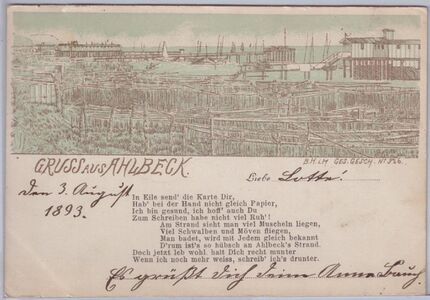 GRUSS AUS AHLBECK.
B.H.i.M. GES. GESCH. No
Liebe Lotte!
den 3. August
1893.
In Eile send' die Karte Dir,
Hab' bei der Hand nicht gleich Papier,
Ich bin gesund, ich hoff' auch Du
Zum Schreiben habe nicht viel Ruh'!
Am Strand sieht man viel Muscheln liegen,
Viel Schwalben und Möven fliegen,
Man badet, wird mit Jedem gleich bekannt
D'rum ist's so hübsch an Ahlbeck's Strand.
Doch jetzt leb wohl, halt Dich recht munter
Wenn ich noch mehr weiss, schreib' ich's drunter.
Es grüßt dich deine Anna